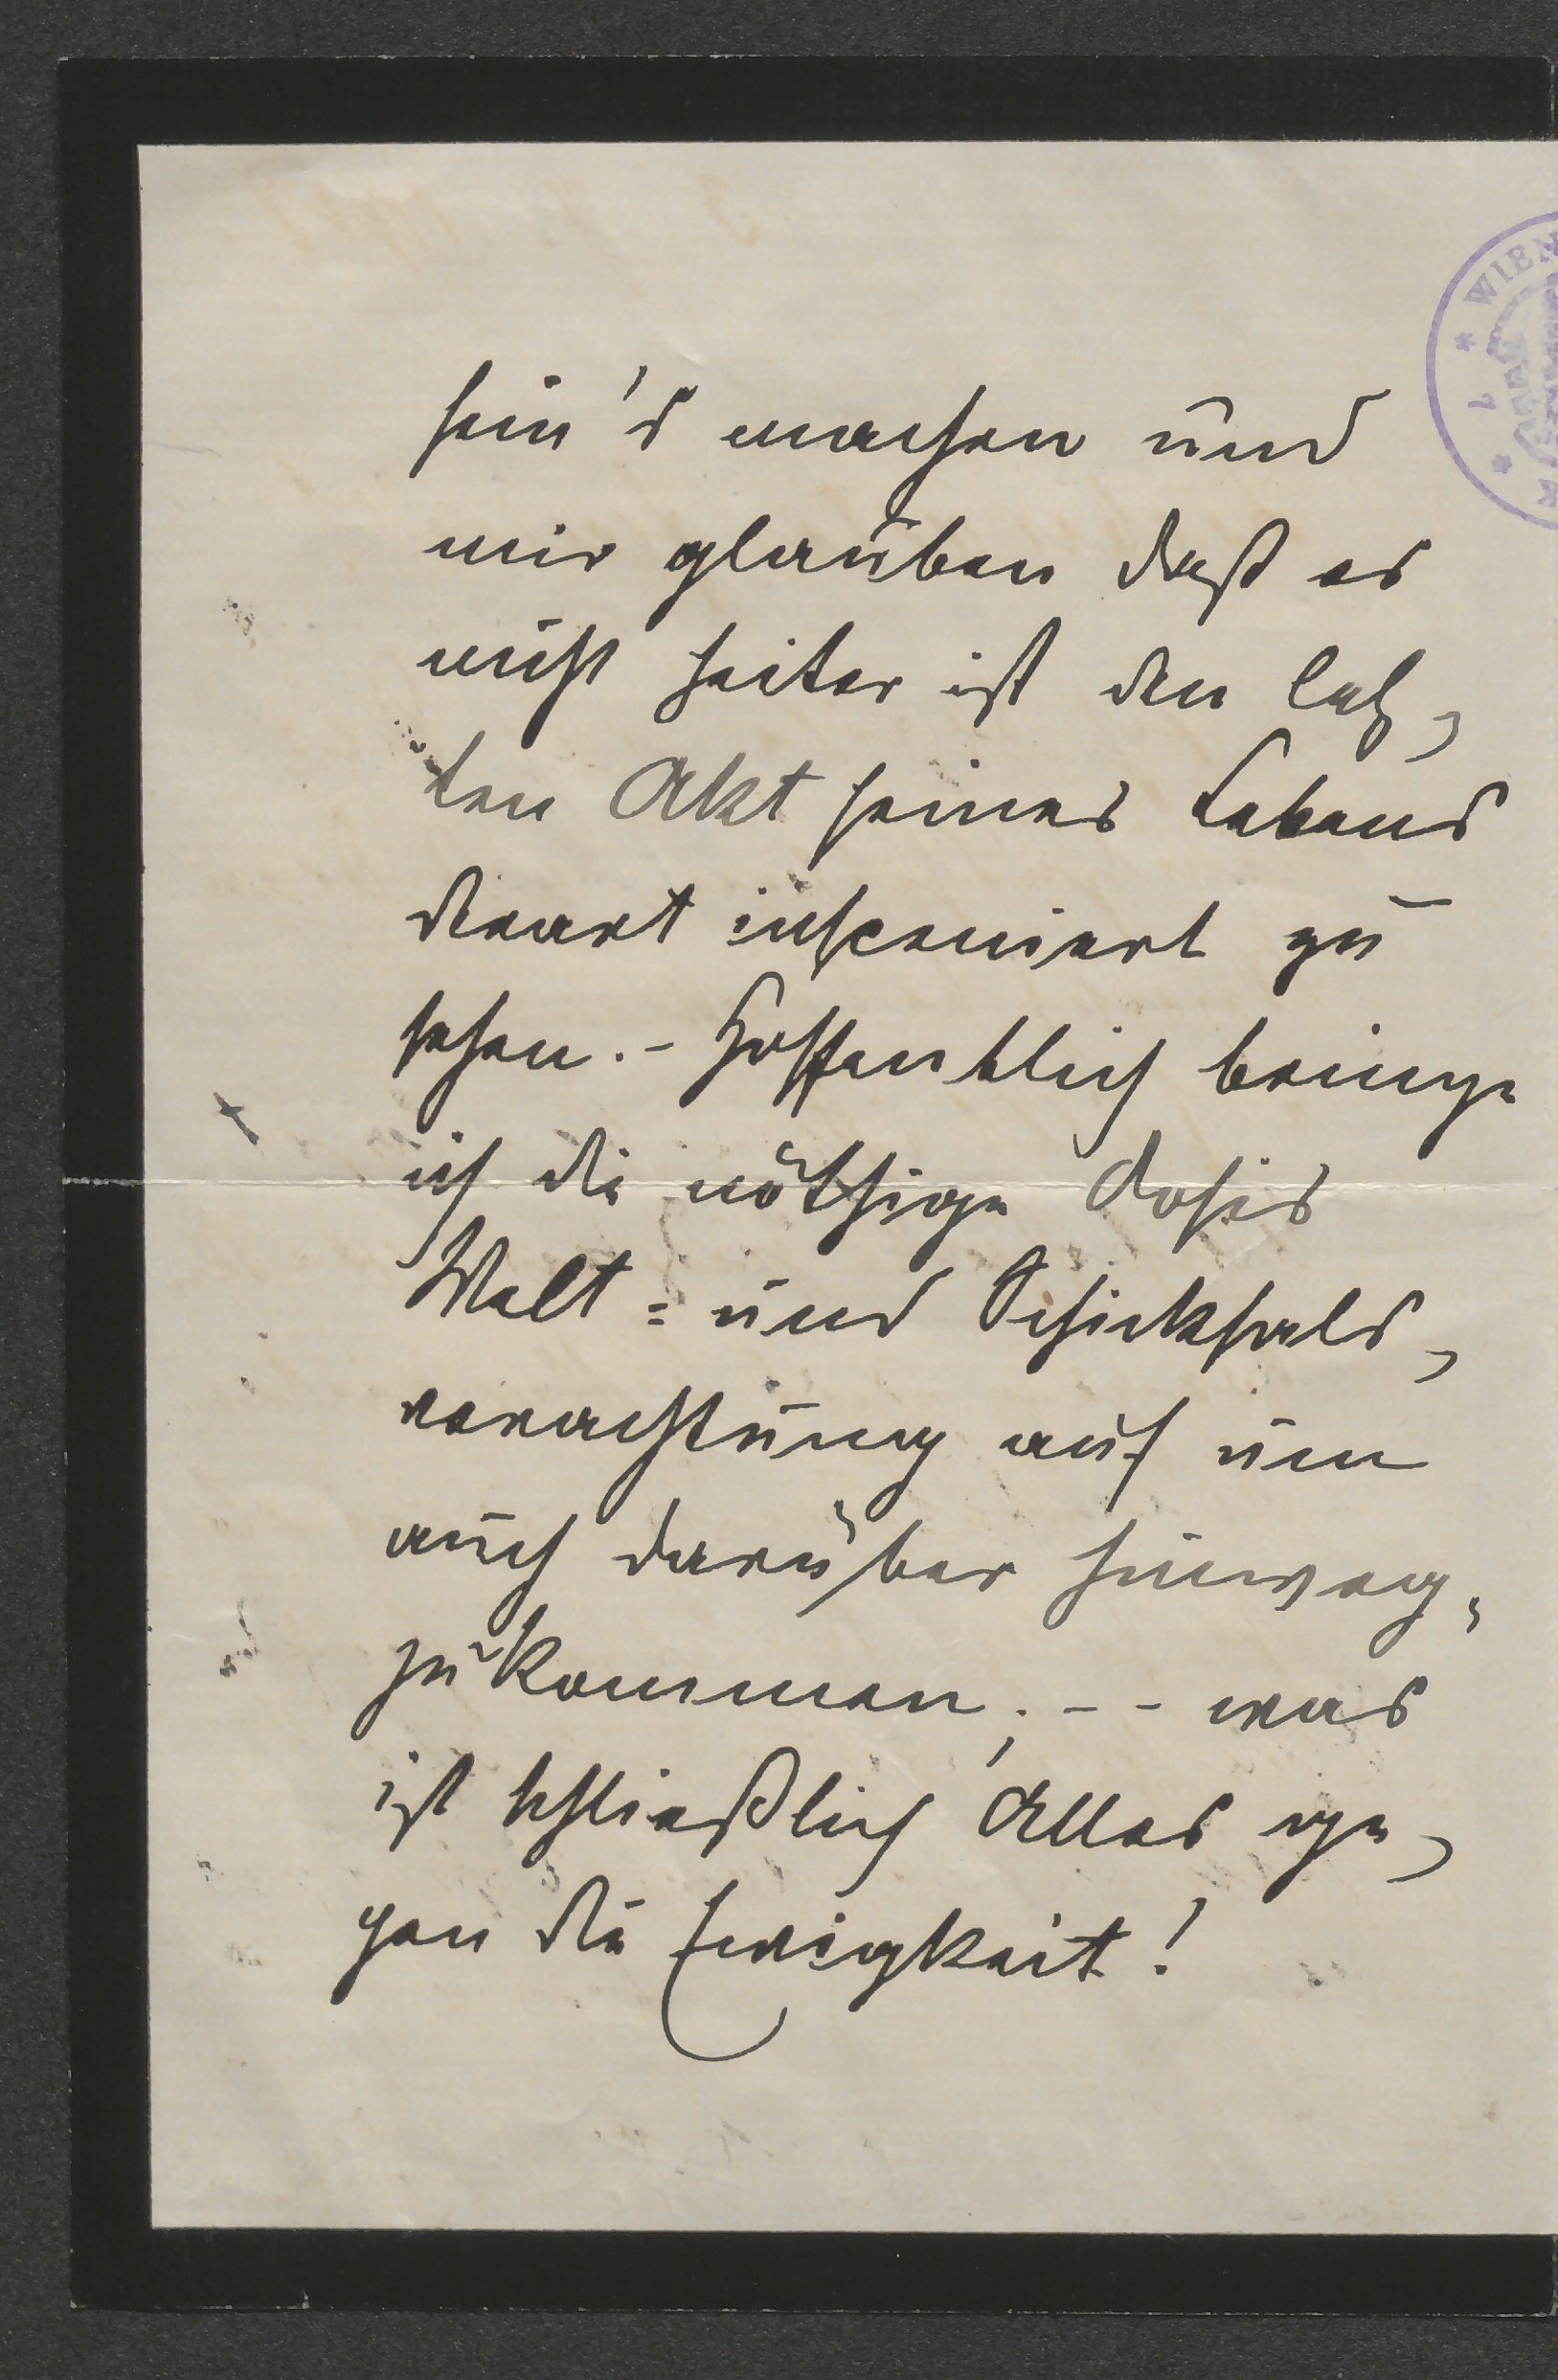 sein's machen und
mir glauben daß es
nicht heiter ist den letz-
ten Akt seines Lebens
derart insceniert zu
sehen. - Hoffentlich bringe
ich die nöthige Dosis
Welt= und Schicksals-
verachtung auf um
auch darüber hinweg-
zukommen; -- was
ist schließlich Alles ge-
gen die Ewigkeit!
WIEN